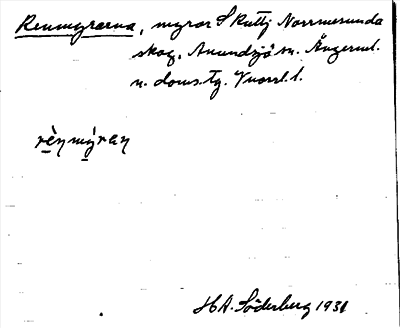 Renmyrarna, myror S Ruttj Norrmesunda
skog, Anundsjö sn. Ångerml.
n. doms.tg. Vnorrl. l.
rènmýran
H A. Söderberg 1931